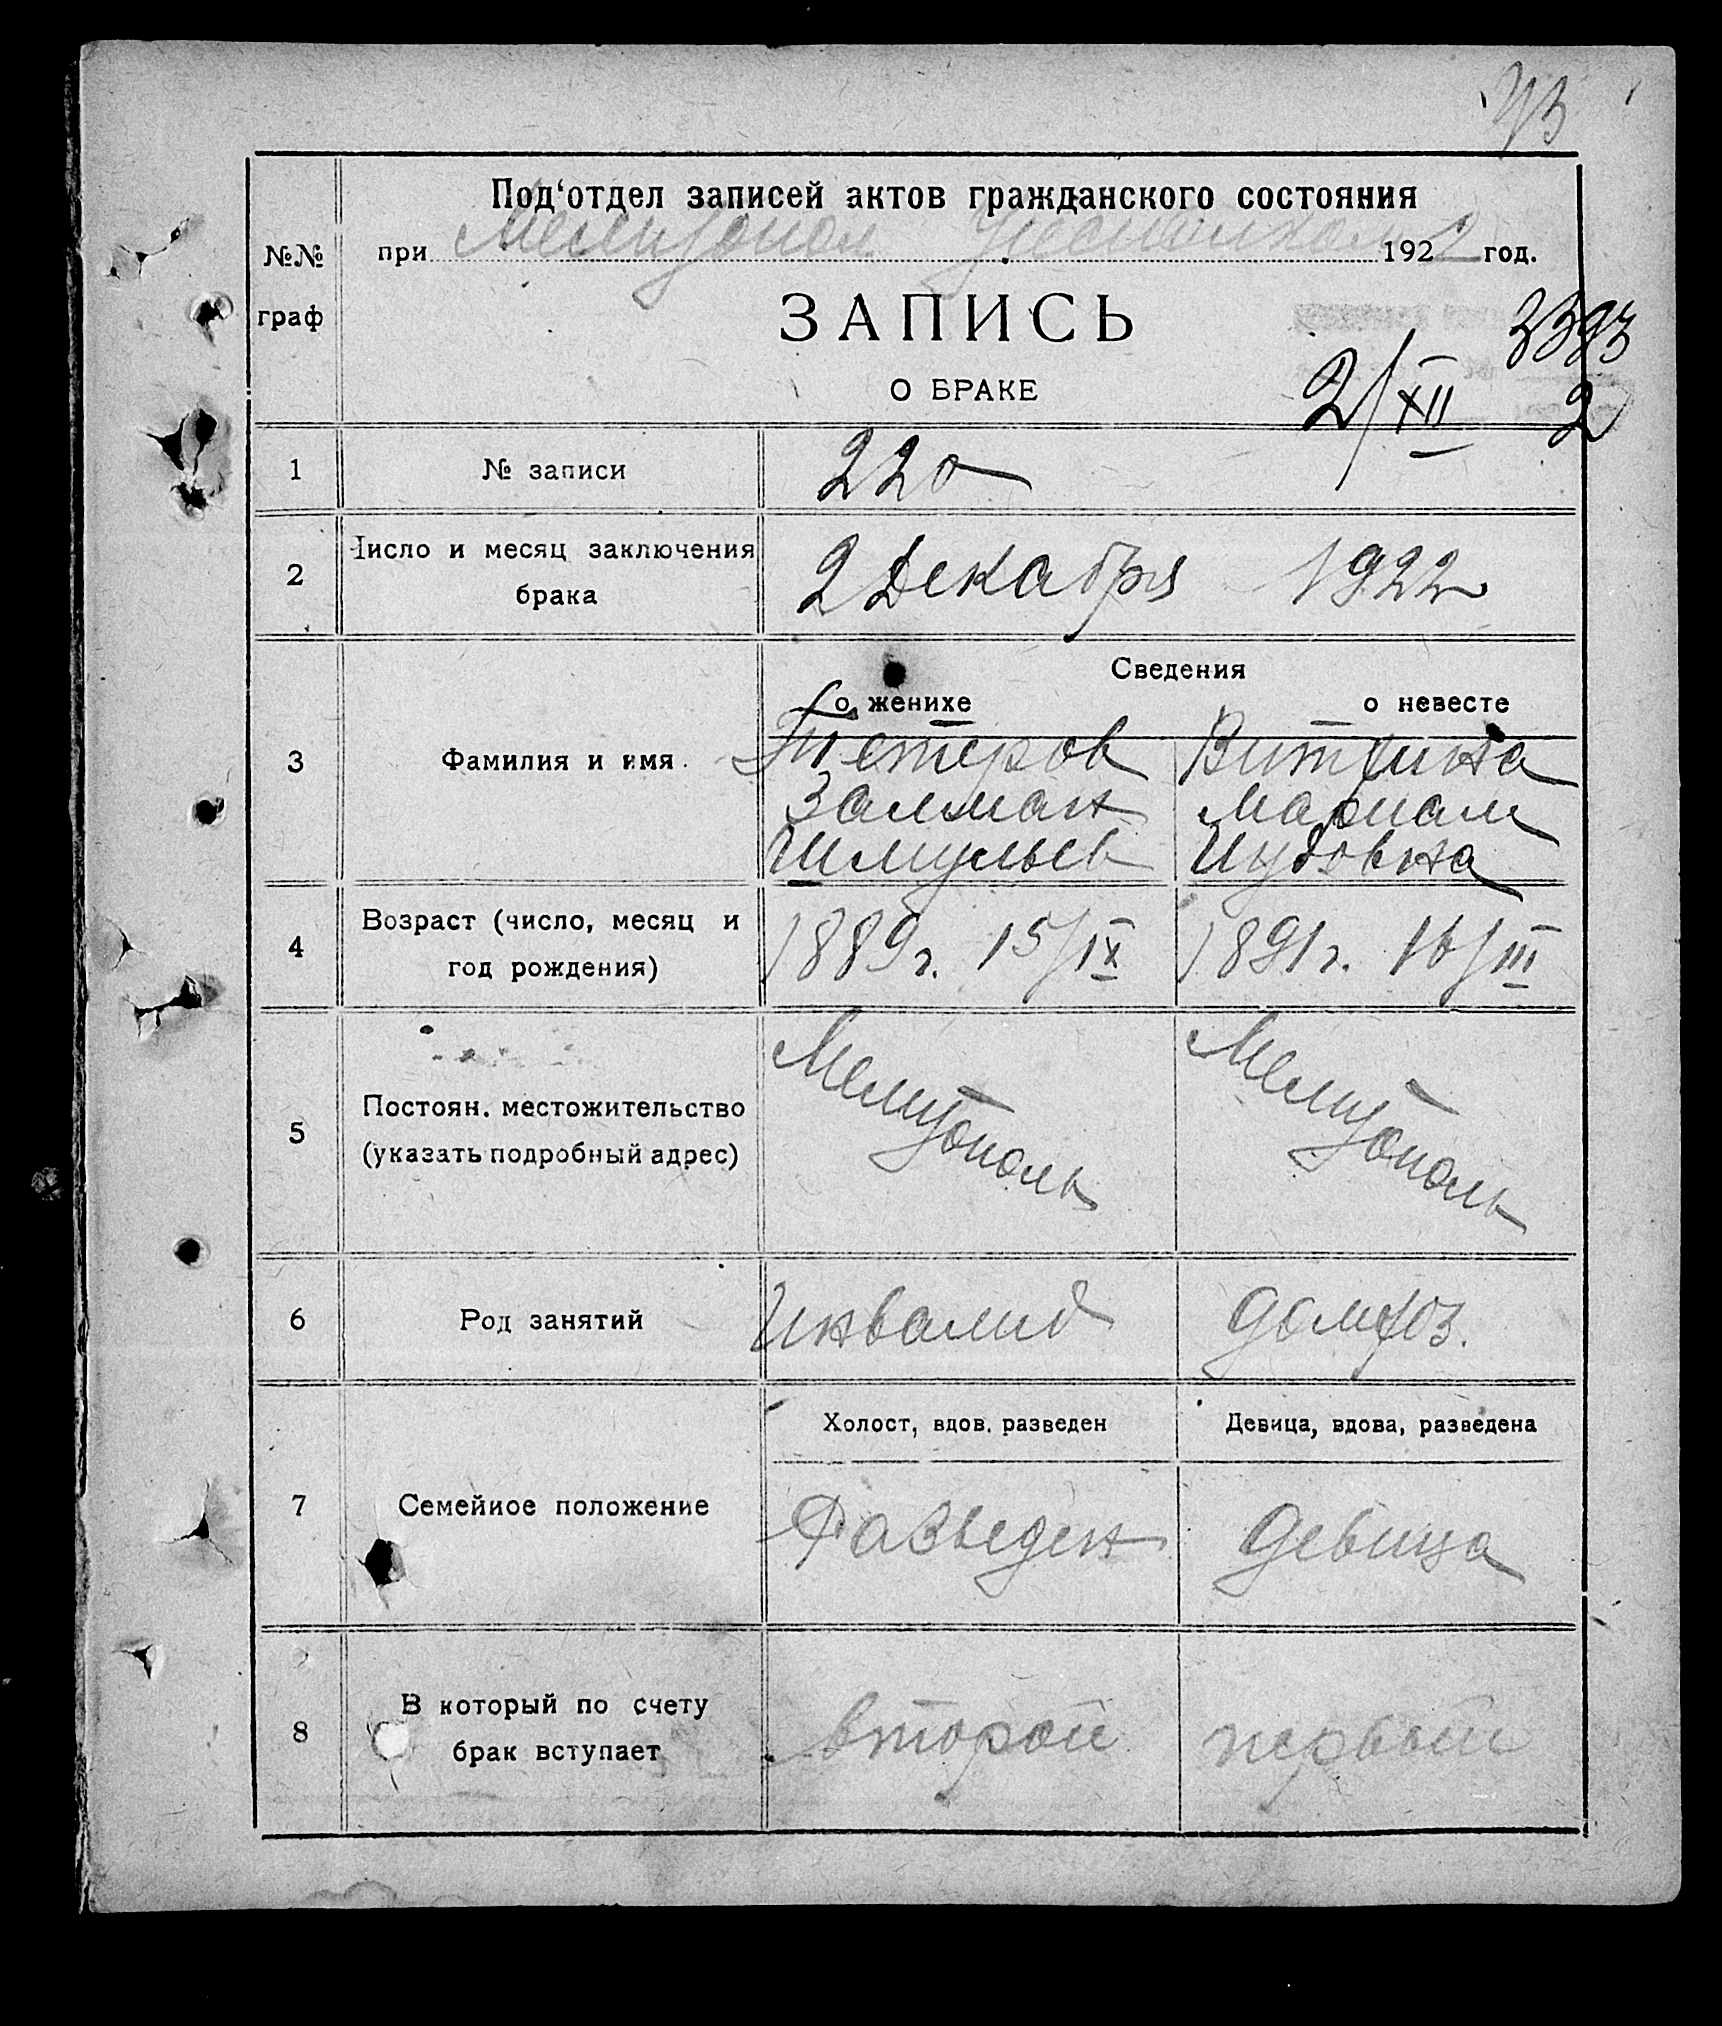 Под‘отдел записей актов гражданского состояния
№№ граф
при Мелитопол Уисполком 1922 год.
ЗАПИСЬ
О БРАКЕ
3393
2/XII 2
1 № записи 220
2 Число и месяц заключения брака 2 Декабря 1922
Сведения
о женихе о невесте
3 Фамилия и имя.
Тетеров
Залман
Шмульев
Виткина
Мариам
Иудовна
4 Возраст (число, месяц и
год рождения)
1889 г. 15/IX 1891 г. 16/III
5 Постоян. местожительство
(указать подробный адрес)
Мелитополь Мелитополь
6 Род занятий Инвалид домхоз.
Холост, вдов. разведен Девица, вдова, разведена
7 Семейное положение Разведен девица
8 В который по счету
брак вступает
второй первый